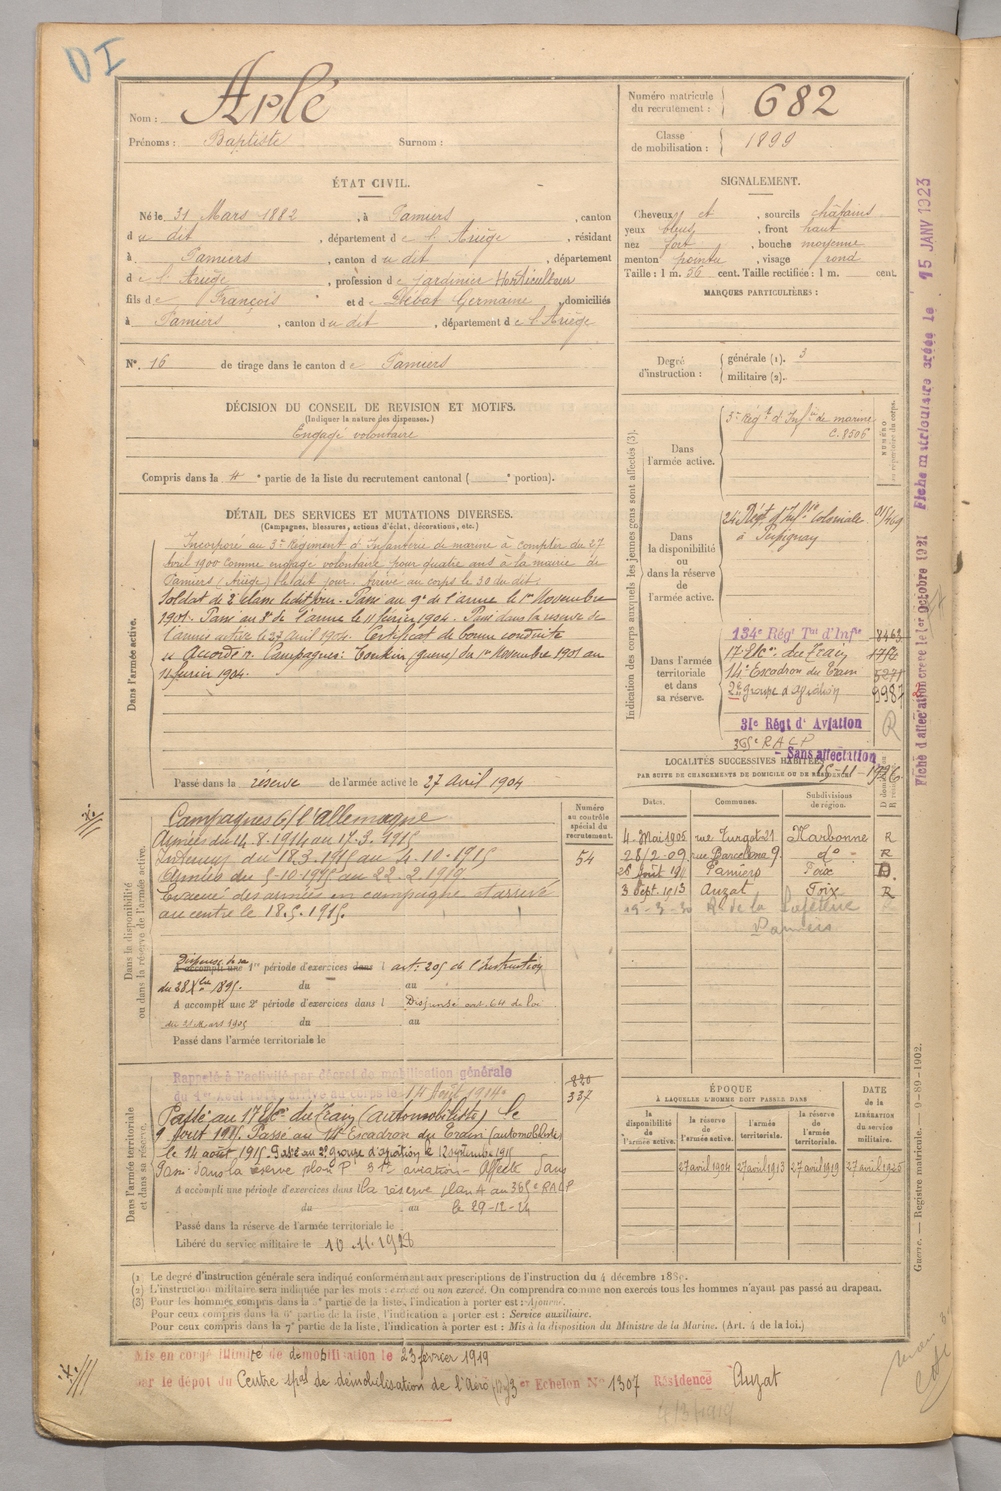 DI
Nom : Arlé
Prénoms : Baptiste Surnom :
Numéro matricule du recrutement : 682
Classe de mobilisation : 1899
ÉTAT CIVIL.
Né le 31 Mars 1882, à Pamiers, canton
du dit, département de l'Ariège, résidant
à Pamiers, canton du dit, département
de l'Ariège, profession de jardinier Horticulteur
fils de François et de Débat Germaine, domiciliés
à Pamiers, canton du dit, département de l'Ariège
N° 16 de tirage dans le canton de Pamiers
SIGNALEMENT.
Cheveux et, sourcils châtains
yeux bleus, front haut
nez fort, bouche moyenne
menton pointu, visage rond
Taille : 1 m. 56 cent. Taille rectifiée : 1 m. cent.
MARQUES PARTICULIÈRES :
Degré d'instruction : générale (1). 3
militaire (2).
DÉCISION DU CONSEIL DE REVISION ET MOTIFS.
(Indiquer la nature des dispenses.)
Engagé volontaire
Compris dans la 4e partie de la liste du recrutement cantonal ( e portion).
DÉTAIL DES SERVICES ET MUTATIONS DIVERSES.
(Campagnes, blessures, actions d'éclat, décorations, etc.)
Dans l'armée active.
Incorporé au 3e Régiment d'Infanterie de marine à compter du 27
Avril 1900 comme engagé volontaire pour quatre ans à la mairie de
Pamiers (Ariège) ledit jour. Arrivé au corps le 30 du dit.
Soldat de 2e classe ledit jour. Passé au 9e de l'arme le 1er Novembre
1901. Passé au 8e de l'arme le 11 février 1904. Passé dans la réserve de
l'armée active le 27 Avril 1904. Certificat de bonne conduite
"Accordé". Campagnes : Tonkin (guerre) du 1er Novembre 1901 au
11 février 1904.
Passé dans la réserve de l'armée active le 27 Avril 1904
Indication des corps auxquels les jeunes gens sont affectés (3).
NUMÉRO au répertoire du corps.
Dans l'armée active.
3e Régt d'Infie de marine
C. 8506
Dans la disponibilité ou dans la réserve de l'armée active.
24 Régt d'Infie Coloniale
à Perpignan
Dans l'armée territoriale et dans sa réserve.
134e Régt Tal d'Infie 8463
17e Esc. du Train
14e Escadron du Train
2e groupe d'aviation 9987
31e Régt d'Aviation
365e RALP
Sans affectation
15-11-1926
R
Fiche d'affectation créée le 1er Octobre 1921 Fiche matriculaire créée le 15 JANV 1923
LOCALITÉS SUCCESSIVES HABITÉES
PAR SUITE DE CHANGEMENTS DE DOMICILE OU DE RÉSIDENCE
Dates. Communes. Subdivisions de région.
4 Mai 1906 rue Turgot 21 Narbonne R
28/2-09 rue Barcelona 9 do R
Août Pamiers Foix D.
3 Sept. 1913 Auzat Foix R
19-3-30 R. de la
Pamiers
Dans la disponibilité ou dans la réserve de l'armée active.
Numéro au contrôle spécial du recrutement.
54
Campagnes c/ l'Allemagne
Armées du 14.8.1914 au 17.3.1915
Intérieur du 18.3.1915 au 4.10.1915
Armées du 5.10.1915 au 22.2.1919
Évacué des armées en campagne et arrivé
au centre le 18.5.1915.
Dispensé de sa
A accompli une 1re période d'exercices dans l art. 205 de l'Instruction
du 28 Xbre 1895. du au
A accompli une 2e période d'exercices dans l Dispensé art. 64 de loi
du 21 Mars 1905 du au
Passé dans l'armée territoriale le
Dans l'armée territoriale et dans sa réserve.
Rappelé à l'activité par décret de mobilisation générale
du 1er Août 1914 arrivé au corps le 14 Août 1914.
820
337
Passé au 17e Esc. du Train (automobiliste) le
9 Août 1915. Passé au 14e Escadron du Train (automobiliste)
le 14 août 1915. Passé au 2e groupe d'aviation le 12 septembre 1915
Passé dans la réserve plan P 31e aviation - Affecté dans
A accompli une période d'exercices dans l la réserve plan A au 365e RALP
du au le 29-12-24
Passé dans la réserve de l'armée territoriale le
Libéré du service militaire le 10.11.1928
ÉPOQUE
À LAQUELLE L'HOMME DOIT PASSER DANS
DATE de la LIBÉRATION du service militaire.
la disponibilité de l'armée active. la réserve de l'armée active. l'armée territoriale. la réserve de l'armée territoriale.
27 avril 1904 27 avril 1913 27 avril 1919 27 avril 1925
Guerre. — Registre matricule. — 9-89-1902.
(1) Le degré d'instruction générale sera indiqué conformément aux prescriptions de l'instruction du 4 décembre 1889.
(2) L'instruction militaire sera indiquée par les mots : exercé ou non exercé. On comprendra comme non exercés tous les hommes n'ayant pas passé au drapeau.
(3) Pour les hommes compris dans la 5e partie de la liste, l'indication à porter est : Ajourné.
Pour ceux compris dans la 6e partie de la liste, l'indication à porter est : Service auxiliaire.
Pour ceux compris dans la 7e partie de la liste, l'indication à porter est : Mis à la disposition du Ministre de la Marine. (Art. 4 de la loi.)
Mis en congé illimité de démobilisation le 23 février 1919
par le dépôt du Centre spal de démobilisation de l'Aéro 3er Echelon N° 1307 Résidence Auzat
4/3/1919